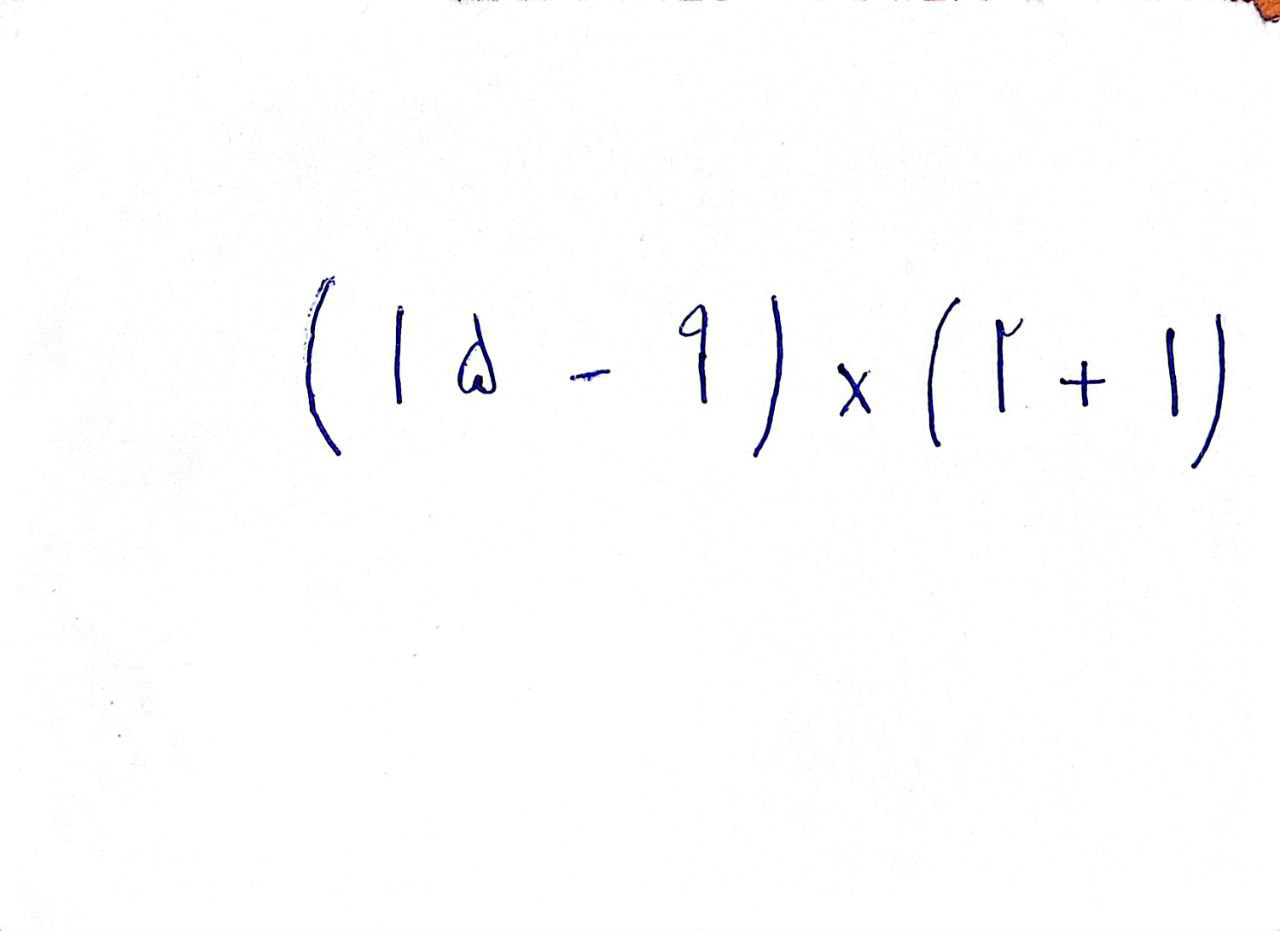 (۱۵ - ۹) × (۲ + ۱)